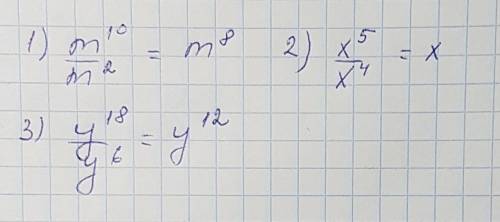 1) m¹⁰/m² = m⁸ 2) x⁵/x⁴ = x
3) y¹⁸/y⁶ = y¹²